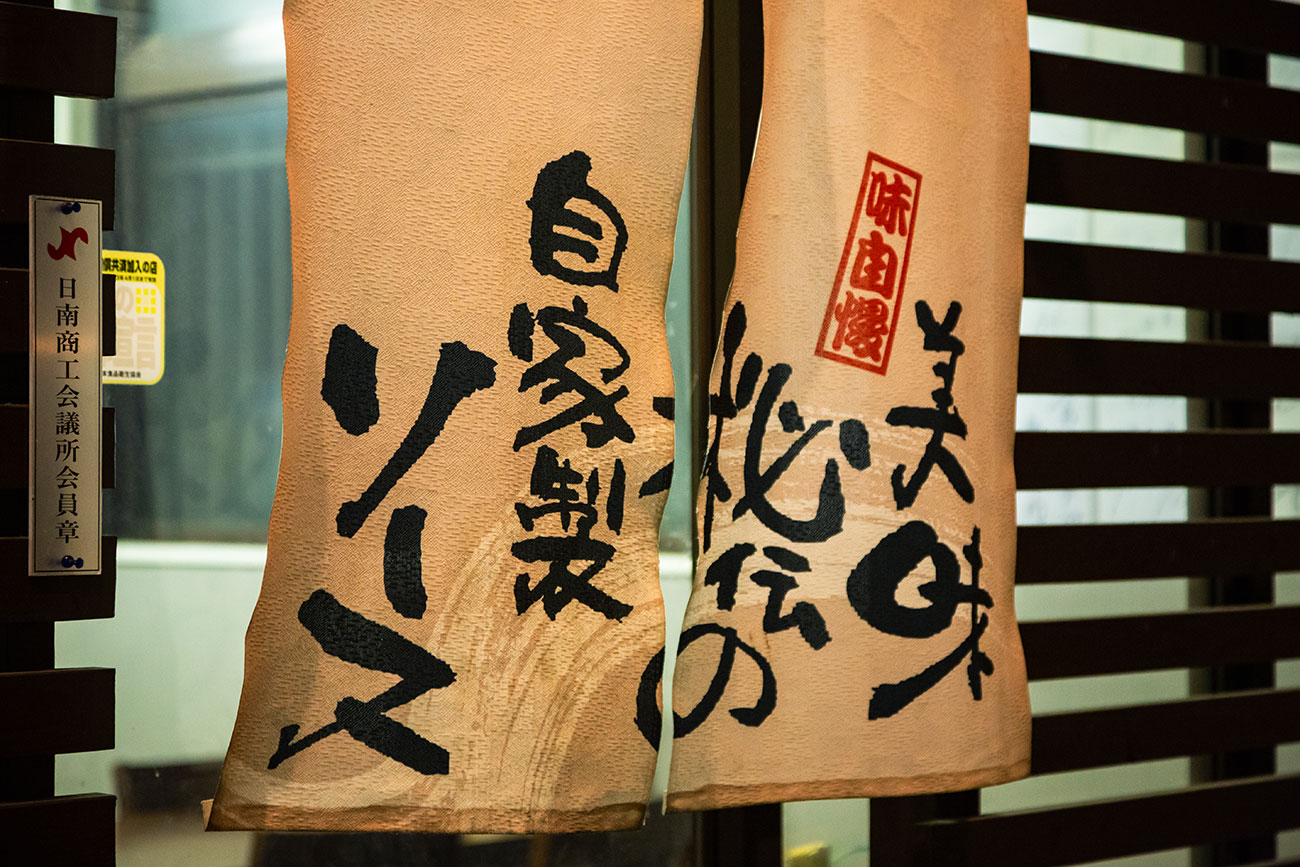 美味
味自慢
秘伝の
自家製
ソース
償共済加入の店
食品衛生協会
日南商工会議所会員章